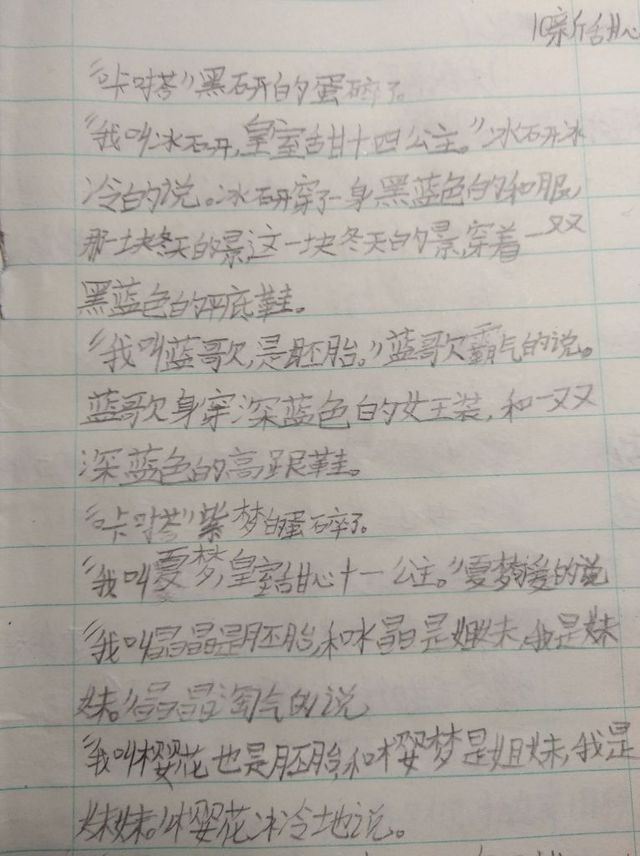 新甜心
“咔嗒”黑研的蛋碎了。
“我叫冰研,皇室甜十四公主。”冰研冰
冷的说。冰研穿了一身黑蓝色的和服,
那一块冬天的景,这一块冬天的景,穿着一双
黑蓝色的平底鞋。
“我叫蓝歌,是胚胎。”蓝歌霸气的说。
蓝歌身穿深蓝色的女王装,和一双
深蓝色的高跟鞋。
“咔嗒”紫梦的蛋碎了。
“我叫夏梦,皇室甜心十一公主。”夏梦的说
“我叫晶晶是胚胎,和水晶是姐妹,我是妹
妹。”晶晶淘气的说
“我叫樱花也是胚胎,和樱梦是姐妹,我是
妹妹。”樱花冰冷地说。